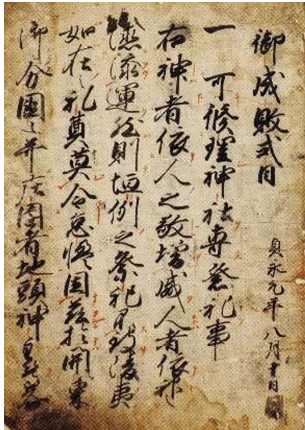 御成敗式目
貞永元年八月十日
一 可修理神社専祭祀事
右神者依人之敬増威人者依神
徳添運然則恒例之祭祀不致陵夷
如在之礼奠莫令怠慢因茲於関東
御分国々并庄園者地頭神主等